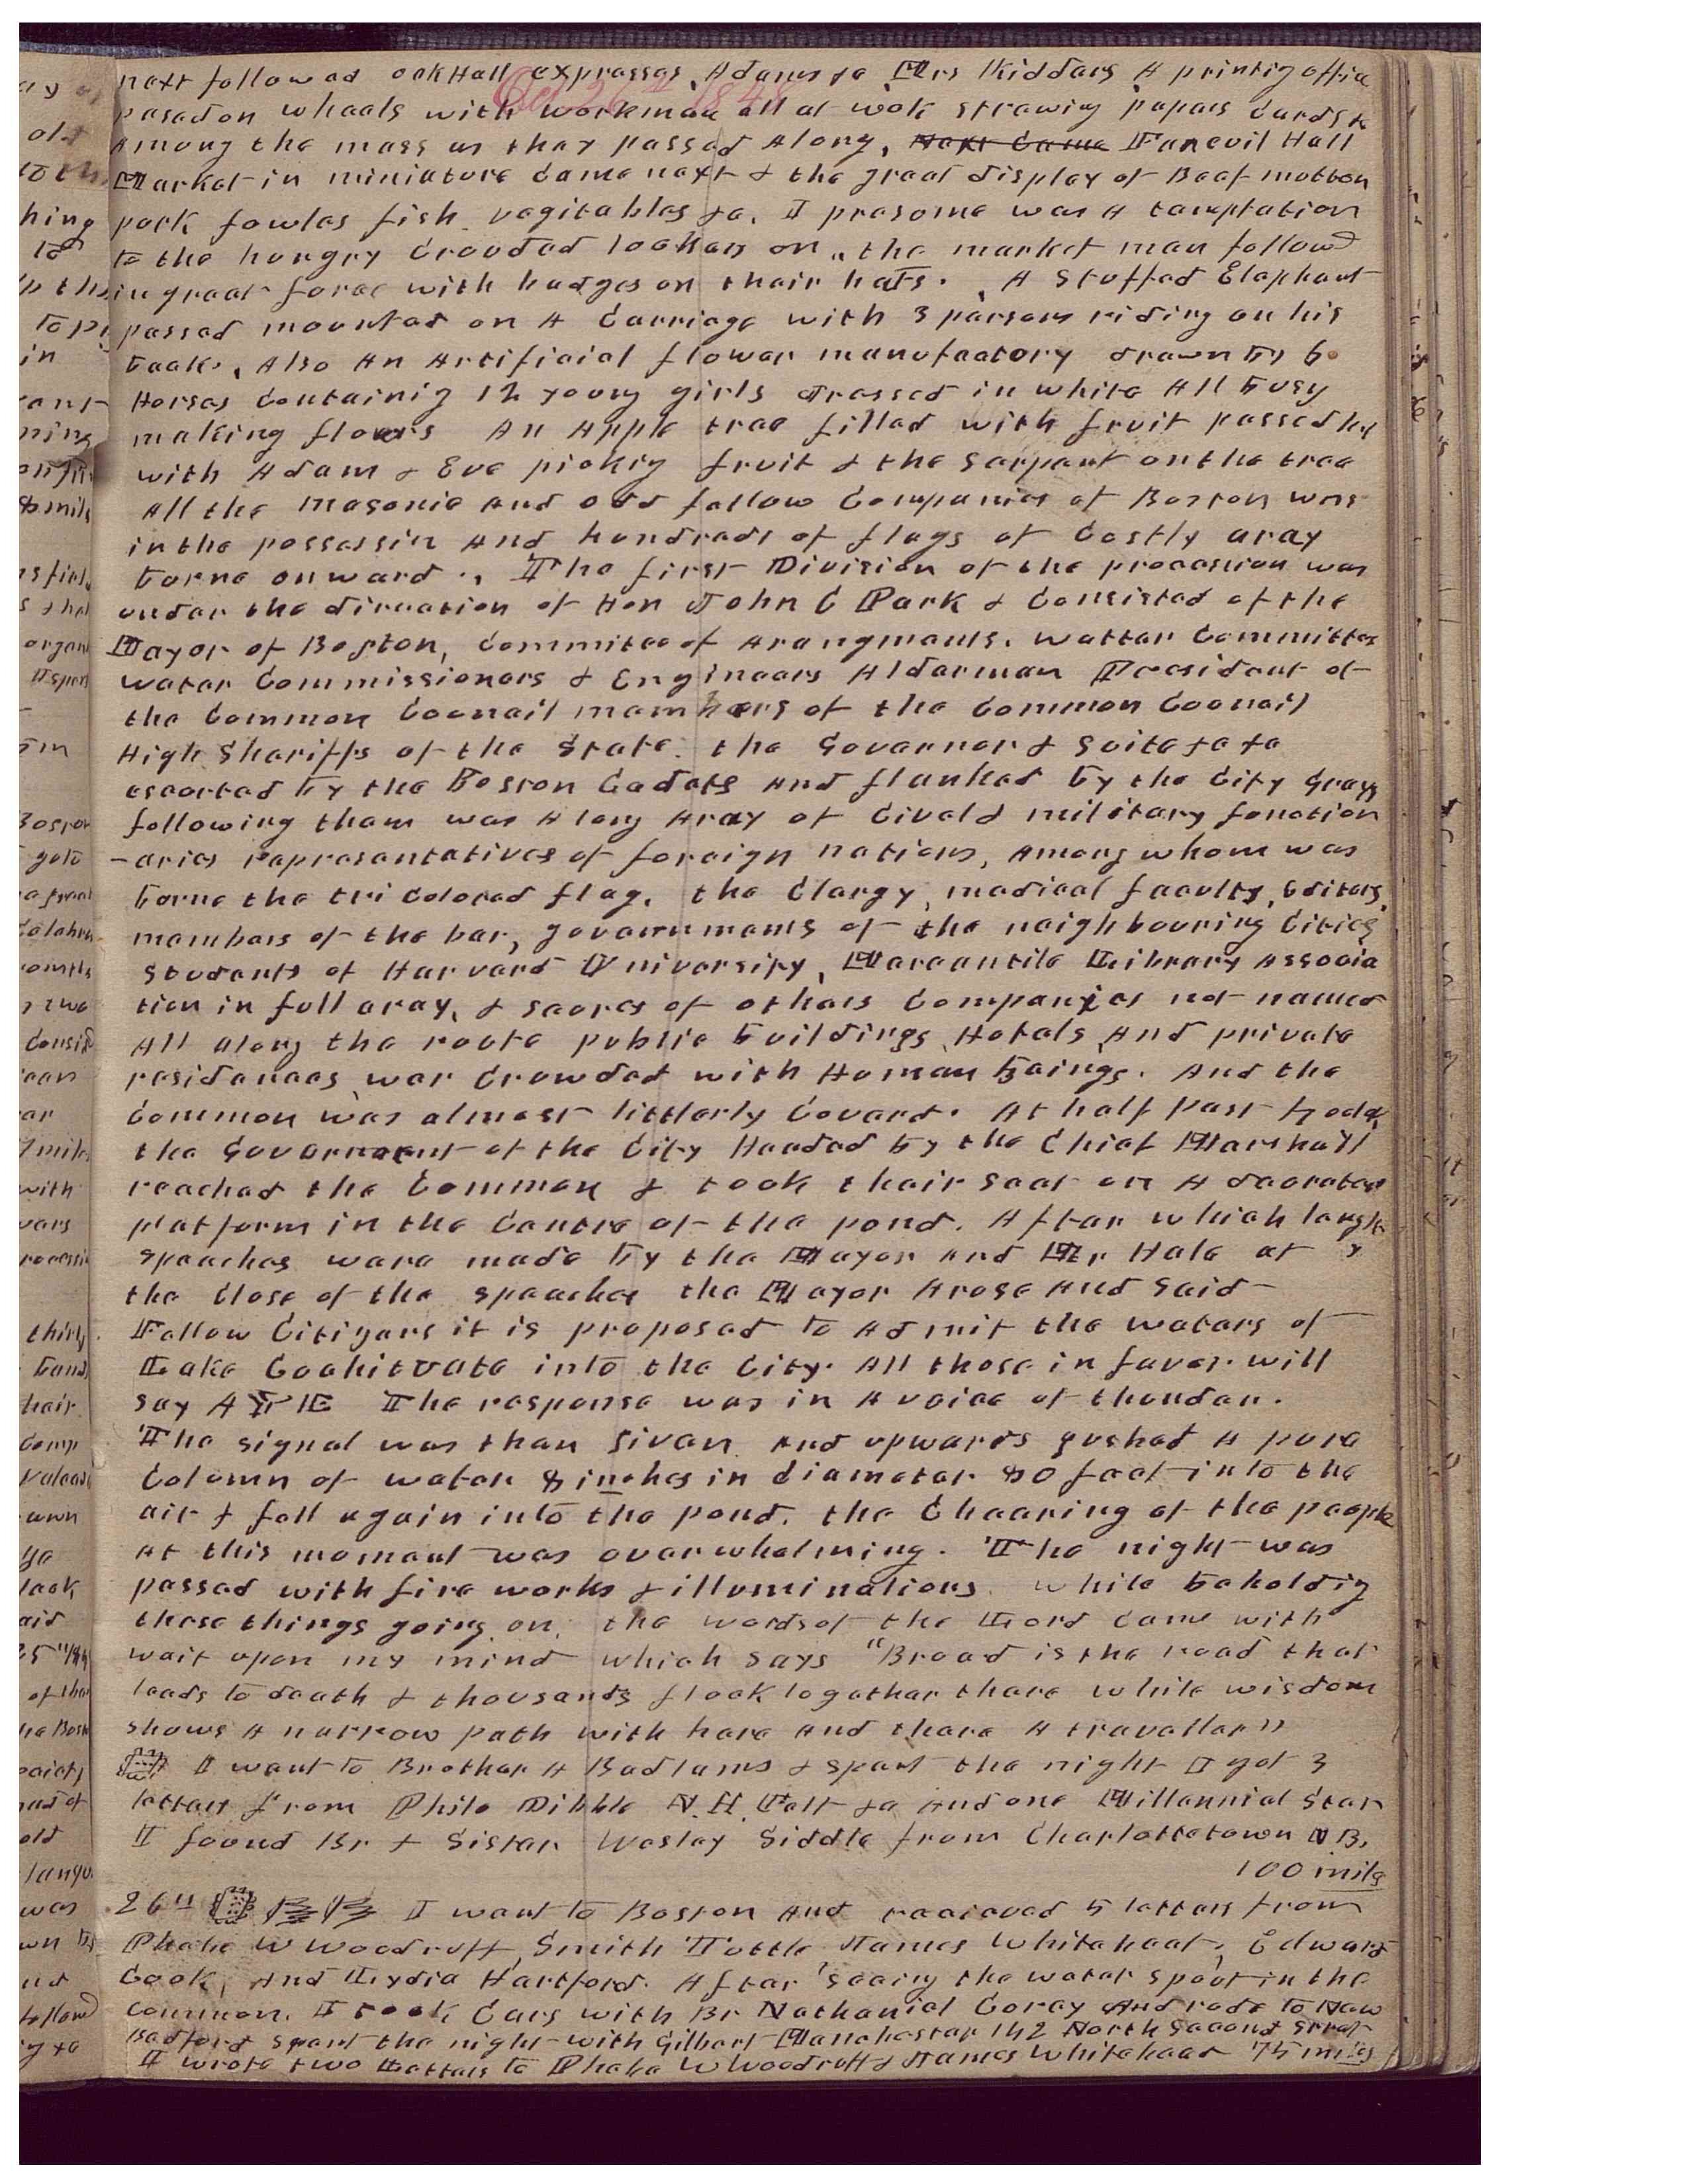 Oct 26th 1848
next followed oak Hall expresses, Adams &c Mrs Kidders A printig office
pased on wheels with workmen all at wok strewing papers Cards &c
Among the mass as they passed Along, Next Came Fanevil Hall
Market in miniature Came next & the great display of Beef mutton
pork fowles fish vegitables &c. I presome was A temptation
to the hungry Crouded lookers on, the market men followd
in great force with badges on their hats. A Stuffed Elephant
passed mounted on A Carriage with 3 persons riding on his
back, Also An Artificial flower manufactory drawn by 6
Horses Containig 12 young girls dressed in white All busy
making flowers An Apple tree filled with fruit passed by
with Adam & Eve pickig fruit & the Serpent on the tree
All the Masonic And odd fellow Companies of Boston was
in the possessin And hundreds of flags of Costly aray
borne onward., The first Division of the procession was
under the direction of Hon John C Park & Consisted of the
Mayor of Boston, Committee of Arangments. Watter Committee
water Commissioners & Engineers Alderman President of
the Common Councail members of the Common Councail
High Sheriffs of the State. the Governor & Suite &c &c
escorted by the Boston Cadets And flanked by the City Grays
following them was A long Aray of Civel & military function
-aries representatatives of foreign nations, Among whom was
borne the tri Colored flag, the Clergy, medical faculty, Editors,
members of the bar, governments of the neighbouring Cities
Students of Harvard University, Marcantile Library Associa
tion in full aray, & scores of others Companies not named
All along the route public buildings, Hotels And private
residences war Crowded with Human beings. And the
Common was almost litterly Coverd. At half past
the Government of the City Headed by the Chief Marshall
reached the Common & took their Seat on A decorated
platform in the Centre of the pond. After which lengthy
speeches were made by the Mayor And Mr Hale at
the Close of the speeches the Mayor Arose And Said
Fellow Citizens it is proposed to Admit the waters of
Lake Cochituate into the City. All those in favor will
say AYE The response was in A voice of thunder.
The signal was then given And upwards gushed A pure
Column of water 8 inches in diameter 80 feet into the
air & fell again into the pond. the Cheering of the people
At this moment was overwhelming. The night was
passed with fire works & illuminations. while beholdig
these things going on, the words of the Lord came with
wait upon my mind which Says "Broad is the road that
leads to death & thousands flock together there while wisdom
shows A narrow path with here And there A traveller"
I went to Brother A Badlams & spent the night I got 3
letters from Philo Dibble N. H. Felt &c And one Millennial Star
I found Br & Sister Wesley Siddle from Charlottetown N B.
100 mils
26th I went to Boston And receieved 5 letters from
Phebe W Woodruff, Smith Tuttle James Whitehead, Edward
Cook, And Lydia Hartford. After seeing the water spout in the
common. I took Cars with Br Nathaniel Coray And rode to New
Bedford spent the night with Gilbert Manchester 142 North Second Street
I wrote two Letters to Phebe W Woodruff & James Whitehead 75 miles